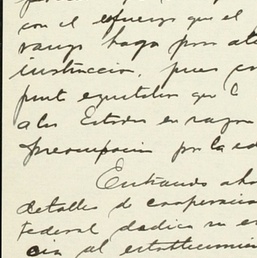 con el esfuerzo que el
rango haga para
instruccion, pues
punt equitativo que
a los Estados en razon
preocupacion por la ed
Entrando aho
detalles de cooperacion
Federal dedica su es
cia al establecimien